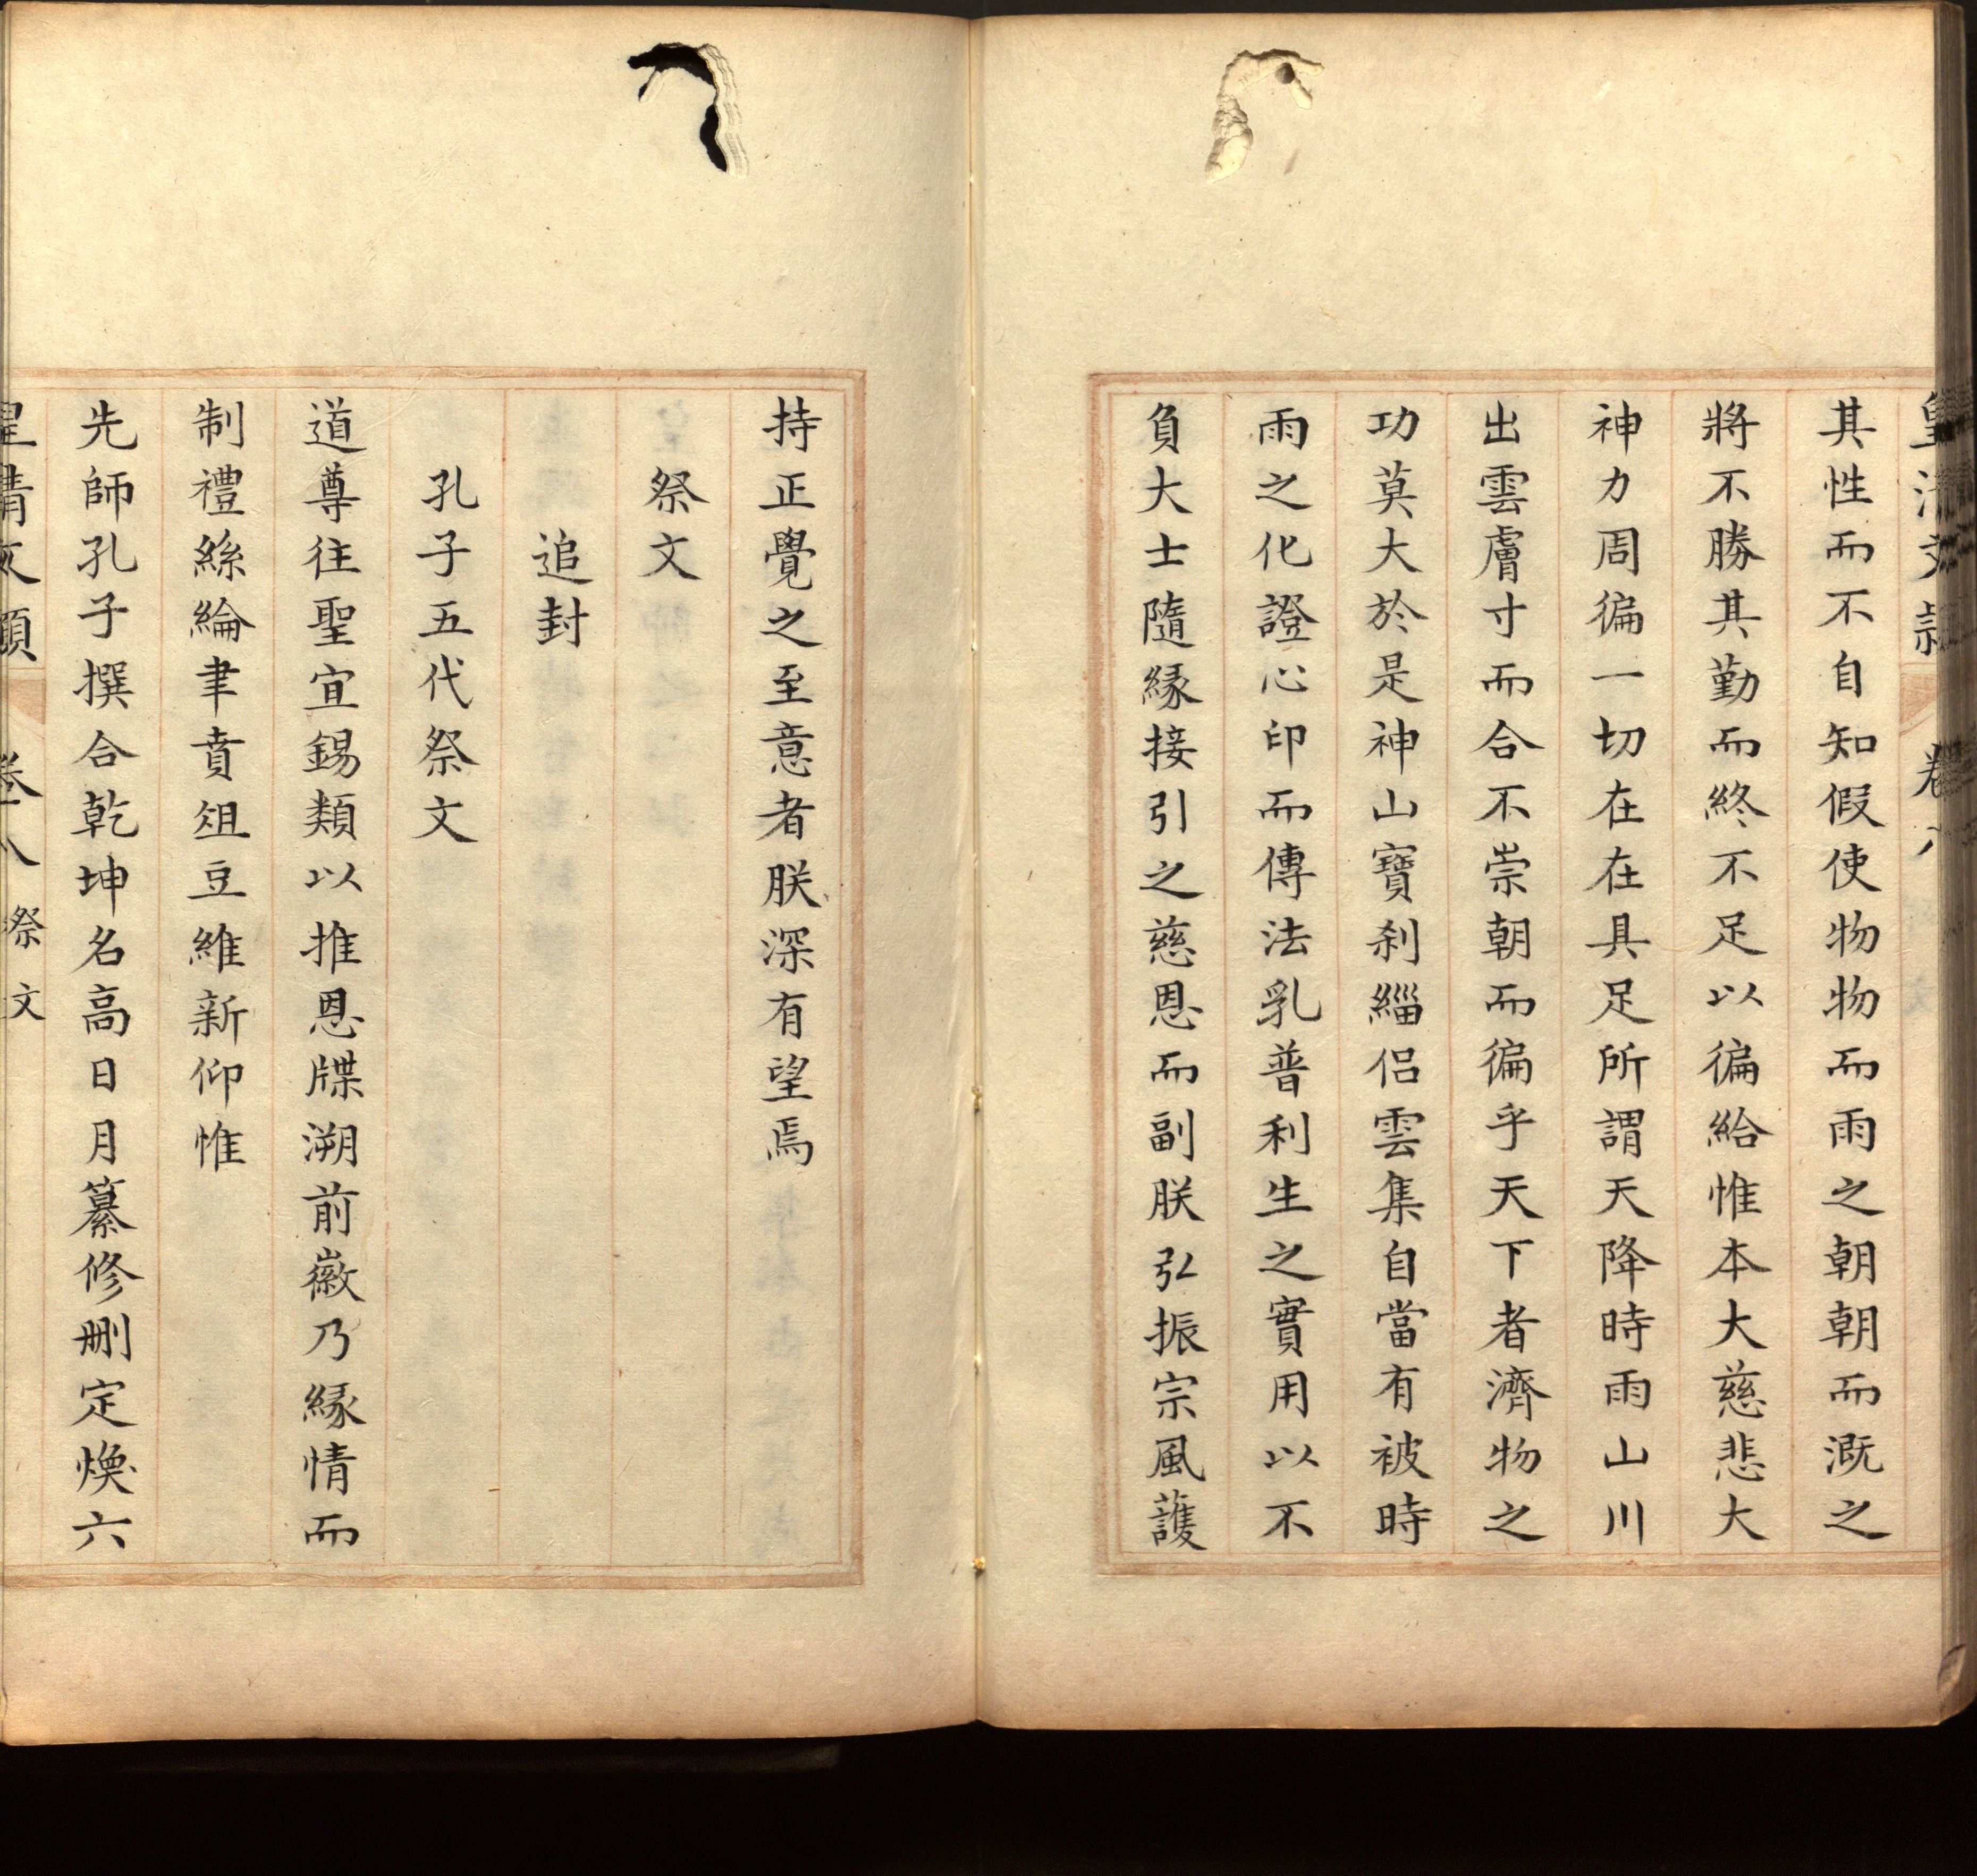 皇清文穎 卷八
其性而不自知假使物物而雨之朝朝而溉之
將不勝其勤而終不足以徧給惟本大慈悲大
神力周徧一切在在具足所謂天降時雨山川
出雲膚寸而合不崇朝而徧乎天下者濟物之
功莫大於是神山寶刹緇侣雲集自當有被時
雨之化證心印而傳法乳普利生之實用以不
負大士隨緣接引之慈恩而副朕弘振宗風護
持正覺之至意者朕深有望焉
祭文
追封
孔子五代祭文
道尊往聖宜錫類以推恩牒溯前徽乃緣情而
制禮絲綸聿賁俎豆維新仰惟
先師孔子撰合乾坤名高日月纂修删定煥六
皇清文穎 卷八 祭文